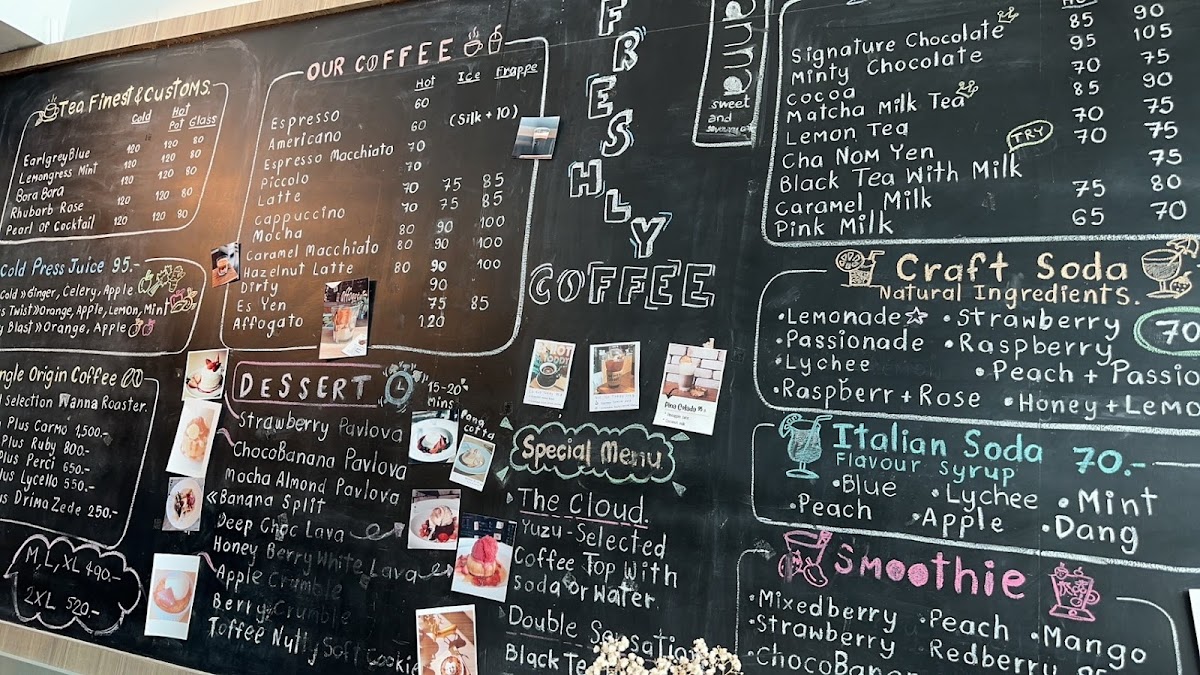 Tea Finest & Customs.
Cold Hot
Pot Glass
EarlgreyBlue 120 120 80
Lemongress Mint 120 120 80
Bora Bora 120 120 80
Rhubarb Rose 120 120 80
Pearl of Cocktail 120 120 80
Cold Press Juice 95.-
Cold » Ginger, Celery, Apple
Twist » Orange, Apple, Lemon, Mint
Blast » Orange, Apple
Origin Coffee
Selection Wanna Roaster.
Plus Carmo 1,500.-
Plus Ruby 800.-
Plus Perci 650.-
Plus Lycello 550.-
Drima Zede 250.-
M, L, XL 490.-
2XL 520.-
OUR COFFEE
Hot Ice Frappe
Espresso 60
Americano 60 (Silk + 10)
Espresso Macchiato 70
Piccolo 70
Latte 70 75 85
Cappuccino 70 75 85
Mocha 80 90 100
Caramel Macchiato 80 90 100
Hazelnut Latte 80 90 100
Dirty 90
Es Yen 75 85
Affogato 120
DESSERT
15-20 Mins
Strawberry Pavlova
ChocoBanana Pavlova
Mocha Almond Pavlova
«Banana Split
Deep Choc Lava
Honey Berry White Lava
Apple Crumble
Berry Crumble
Toffee Nutty Soft Cookie
FRESHLY
COFFEE
Special Menu
The Cloud.
Yuzu-Selected
Coffee Top With
Soda or Water.
Double Sensation
Black Tea
Pina Colada
sweet
and
Hot
85 90
Signature Chocolate 95 105
Minty Chocolate 70 75
Cocoa 85 90
Matcha Milk Tea 70 75
Lemon Tea 70 75
Cha Nom Yen TRY 75
Black Tea With Milk 75 80
Caramel Milk 65 70
Pink Milk
Craft Soda
Natural Ingredients. 70
•Lemonade •Strawberry
•Passionade •Raspberry
•Lychee •Peach + Passio
•Raspberr + Rose •Honey + Lemo
Italian Soda 70.-
Flavour Syrup
•Blue •Lychee •Mint
•Peach •Apple •Dang
Smoothie
•Mixedberry •Peach •Mango
•Strawberry •Redberry
•ChocoBana